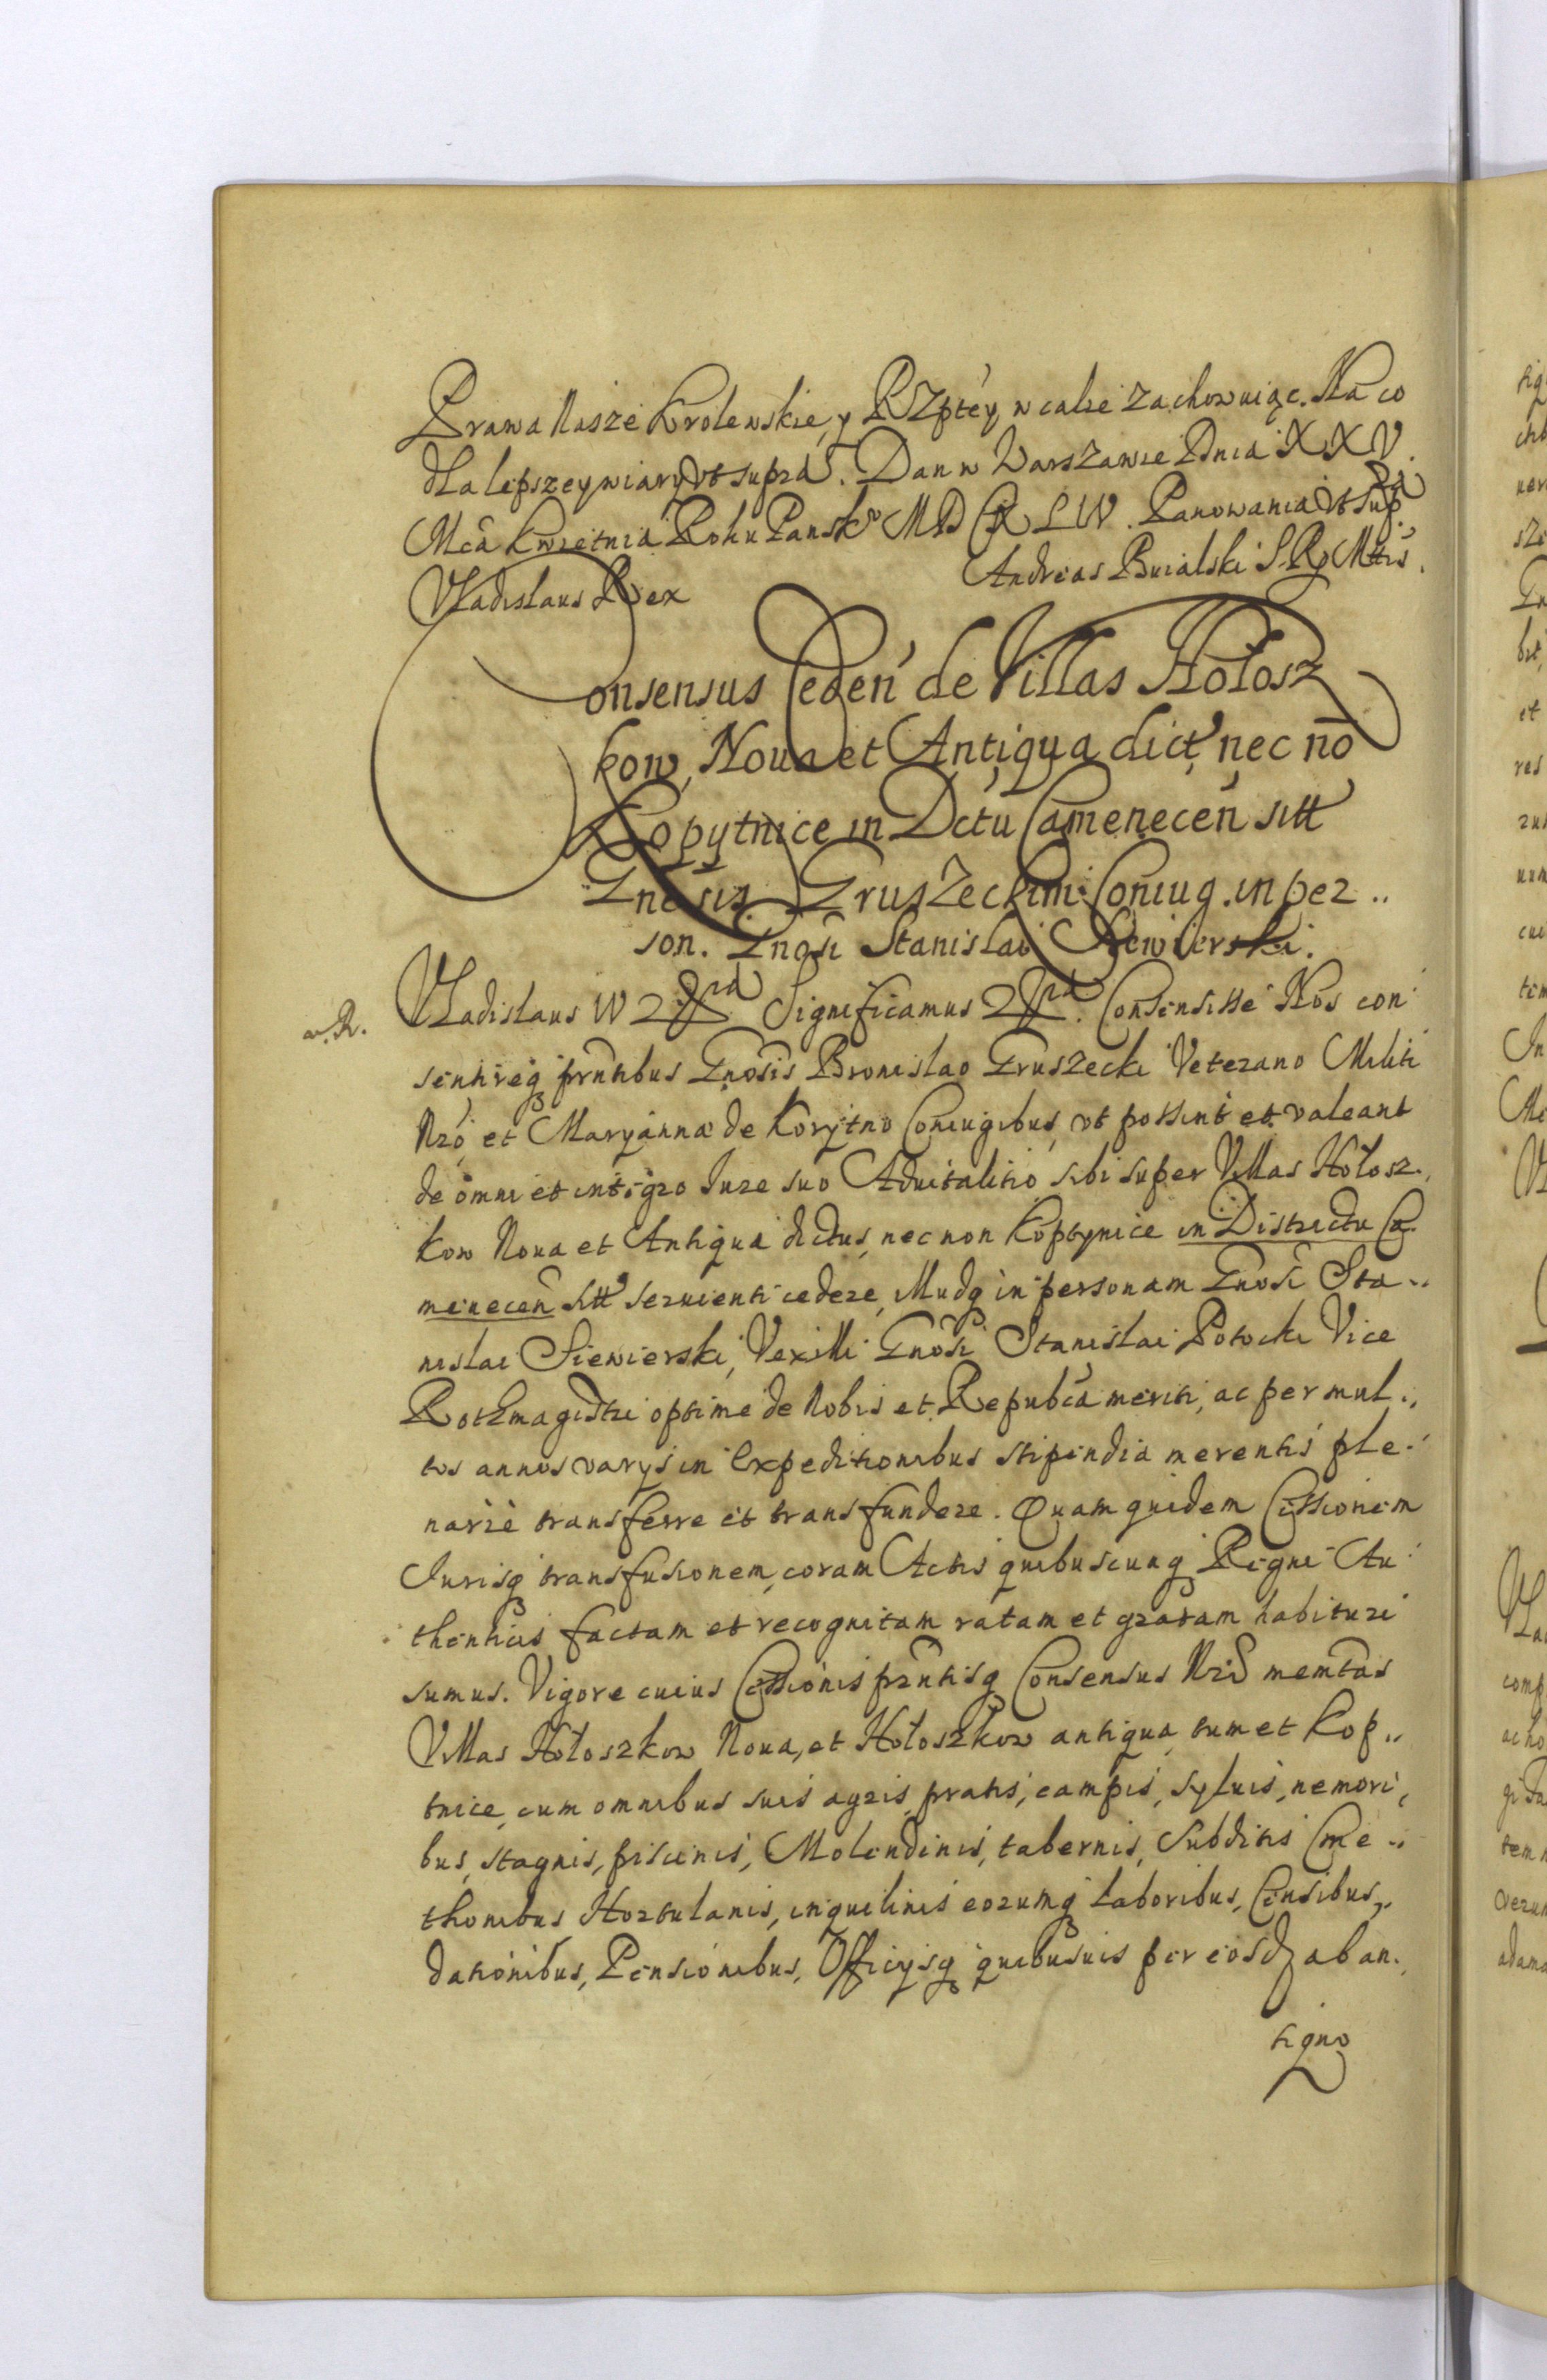 Prawa Nasze Krolewskie, y RZptey w calie zachowuiąc. Na co
dla lepszey wiary Vt supra. Dan w Warszawie Dnia XXV.
Mca Kwietnia Roku Pansko MDCXLIV. Panowania Vt Supra
Vladislaus Rex
Andreas Buialski SRMttis.
Consensus Ceden de Villas Hołosz
kow, Noua et Antiqua dict nec no
Kopytnice in Dctu Camenecen sitt
Gnosis Gruszeckim Coniug. in per..
son. Gnosi Stanislai Siewierski.
Vladislaus IV &ra Significamus &ra. Consensisse Nos con
sentireq prntibus Gnosis Bronislao Gruszecki Veterano Militi
Nro et Maryanna de Korytno Coniugibus, vt possint et valeant
de omni et integro Iure suo Aduitalitio sibi super Villas Hołosz.
kow Noua et Antiqua dictus, nec non Koptynice in Districtu Ca.
menecen sitt seruienti cedere, illudq in personam Gnosi Sta..
nislai Siewierski, Vexilli Gnosi Stanislai Potocki Vice
Rothmagistri optime de Nobis et Republca meriti, ac per mul..
tos annos varys in Expeditionibus stipendia merentis ple.
narie transferre et transfundere. Quam quidem Cessionem
Iurisq transfusionem, coram Actis quibuscunq Regni Au
thenticis factam et recognitam ratam et gratam habituri
sumus. Vigore cuius Cessionis prntisq Consensus Nri memtas
Villas Hołoszkow Noua, et Hołoszkow antiqua, tum et Kop..
tnice, cum omnibus suis agris, pratis, campis, syluis, nemori,
bus, stagnis, piscinis, Molendinis, tabernis, Subditis Cme..
thonibus Hortulanis, inquilinis eorumq laboribus, Censibus,.
dationibus, Pensionibus, Officysq quibusuis per eosd ab an.
tiquo